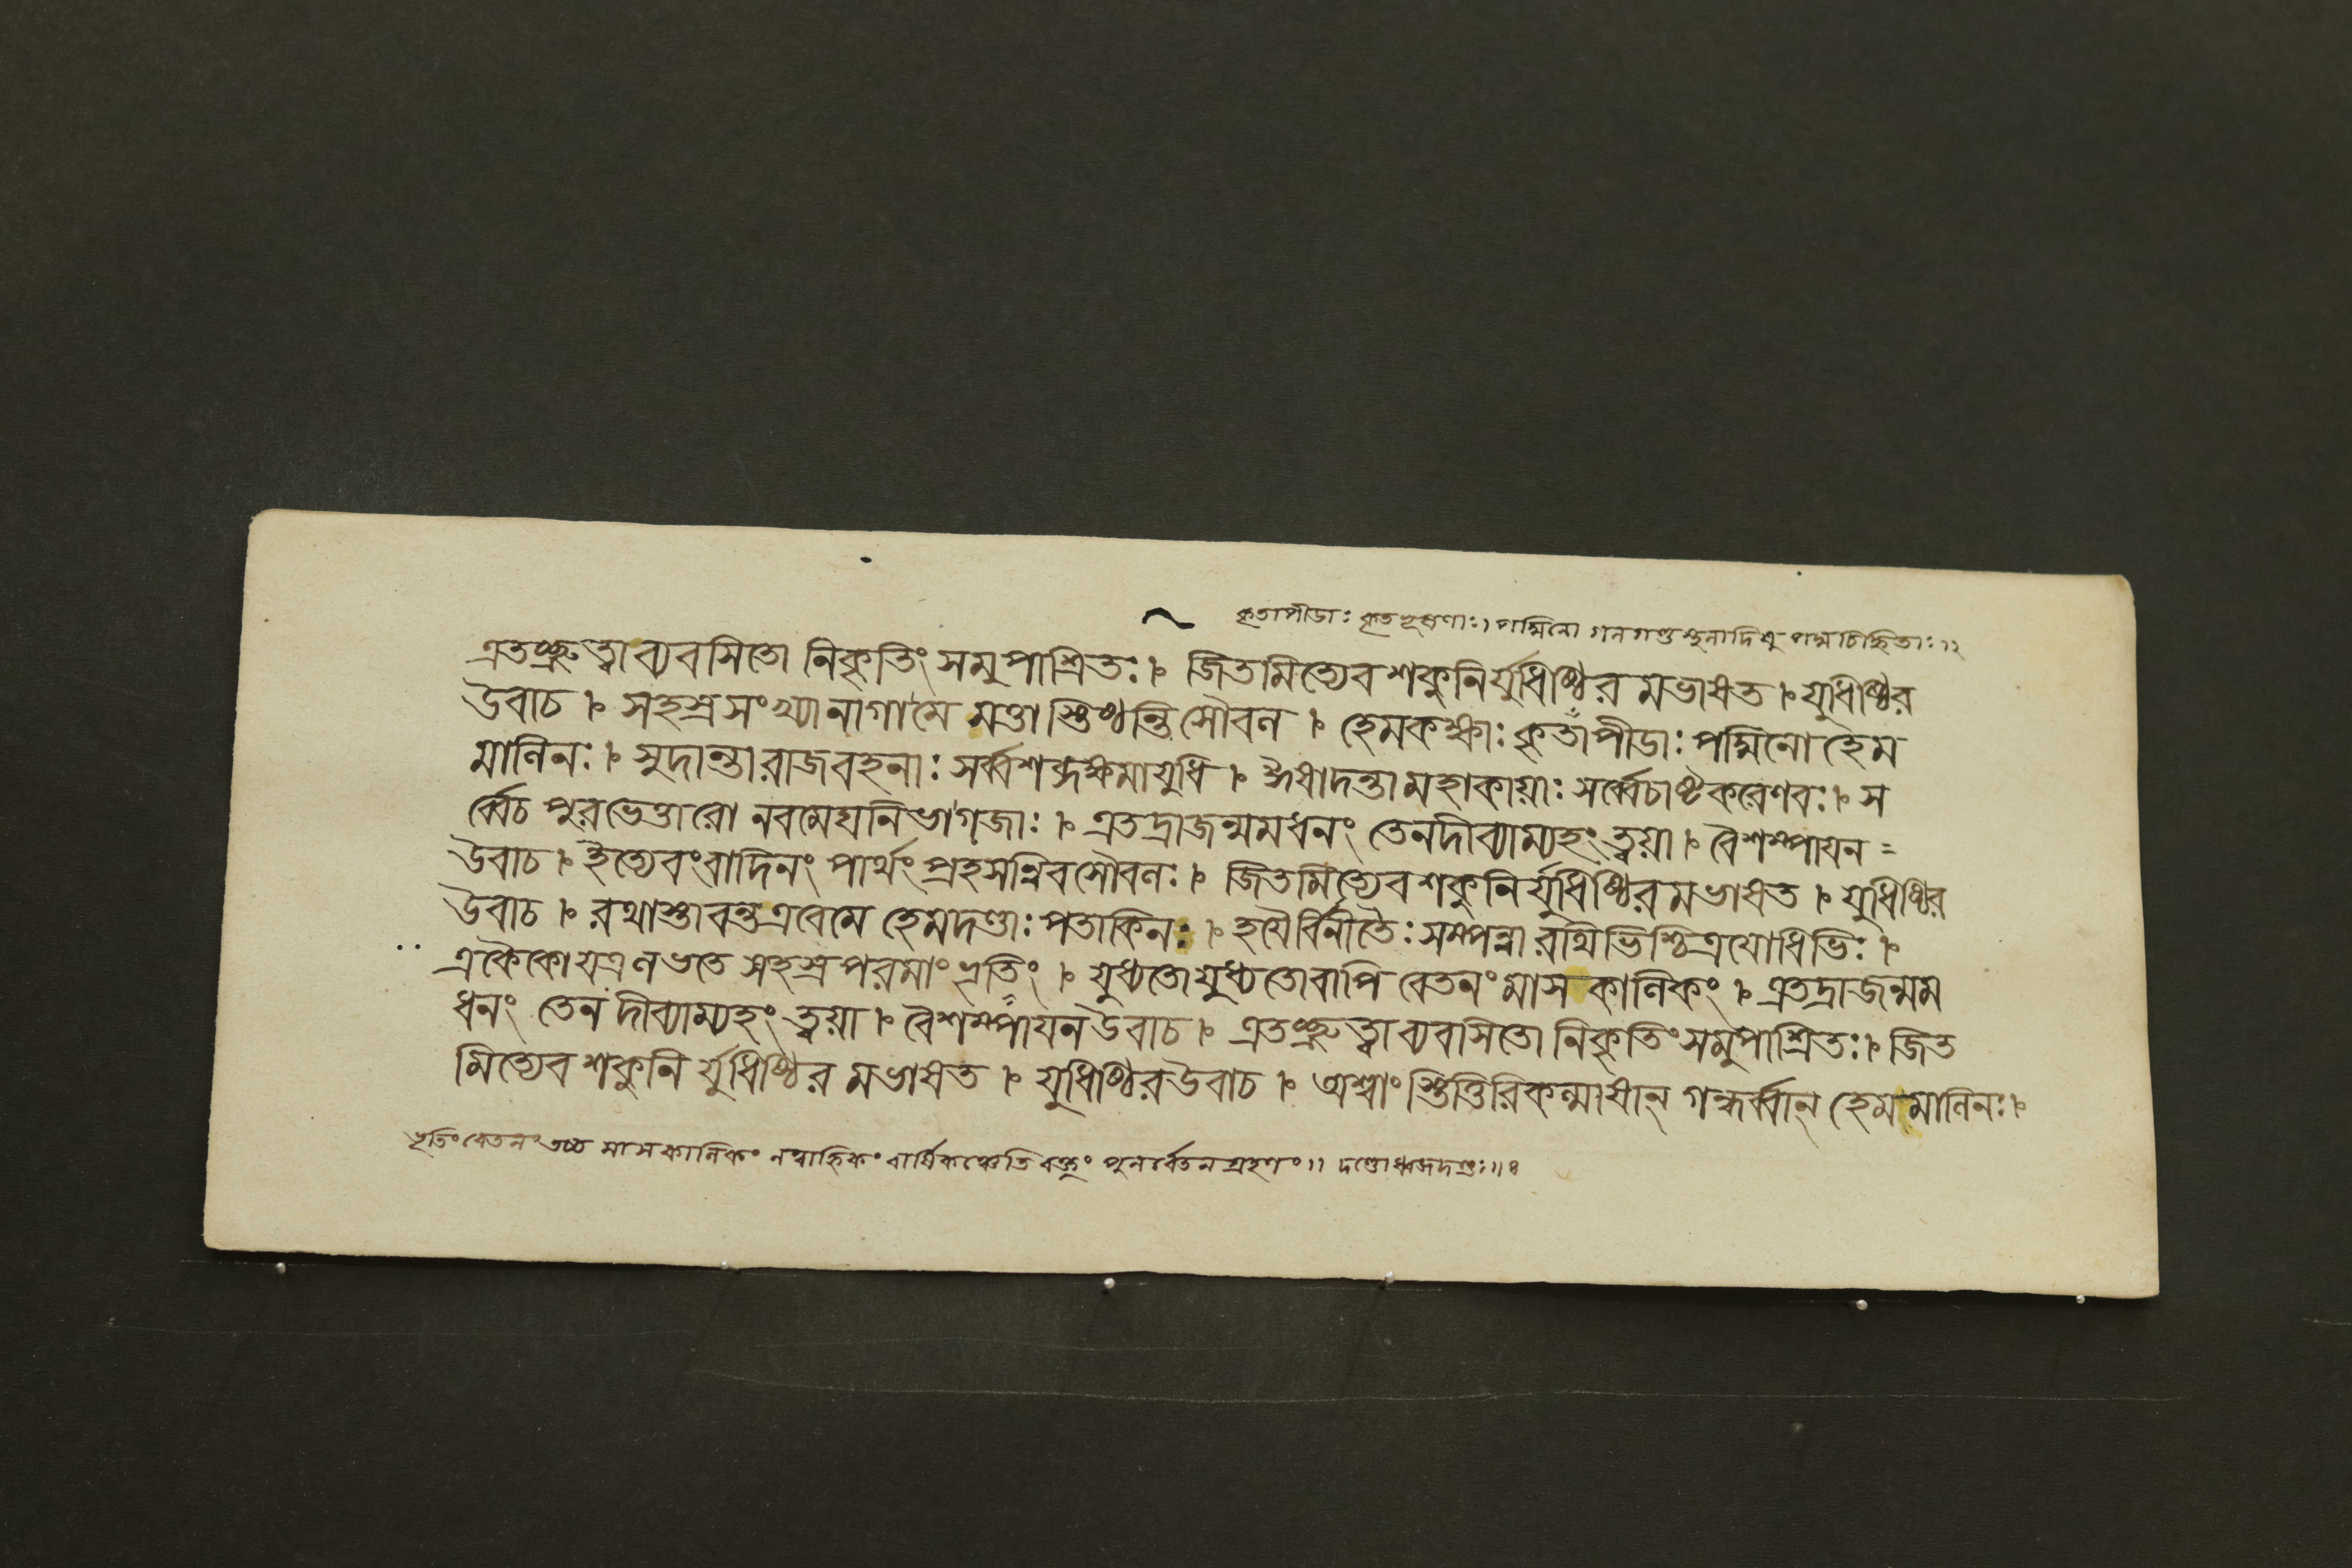 কৃতাপীডাঃ কৃতভূষণাঃ। পদ্মিনো গলগণ্ডশুণাদিষু পদ্মচিহ্নিতাঃ।।২
এতচ্ছ্রুত্বাব্যবসিতো নিকৃতিং সমুপাশ্রিতঃ । জিতমিত্যেবশকুনির্যুধিষ্ঠির মভাষত । যুধিষ্ঠির
উবাচ । সহস্রসংখ্যানাগামে মত্তাস্তিষ্ঠন্তি সৌবল । হেমকক্ষাঃ কৃতাপীডাঃ পদ্মিনো হেম
মালিনঃ । সুদান্তারাজবহনাঃ সর্ব্বশব্দক্ষমাযুধি । ঈষাদন্তা মহাকায়াঃ সর্ব্বেচাষ্টকরেণবঃ । স
র্ব্বেচ পুরভেত্তারো নবমেঘনিভাগজাঃ । এতদ্রাজন্মমধনং তেনদীব্যাম্যহং ত্বয়া । বৈশম্পাযন =
উবাচ । ইত্যেবংবাদিনং পার্থং প্রহসন্নিবসৌবলঃ । জিতমিত্যেবশকুনির্যুধিষ্ঠিরমভাষত । যুধিষ্ঠির
উবাচ । রথাস্তাবন্তএবেমে হেমদণ্ডাঃ পতাকিনঃ । হযৈর্বিনীতৈঃ সম্পন্না রথিভিশ্চিত্রযোধিভিঃ ।
একৈকোযত্রলভতে সহস্রপরমাং ভৃতিং । যুধ্যতোযুধ্যতোবাপি বেতনং মাসকালিকং । এতদ্রাজন্মম
ধনং তেন দীব্যাম্যহং ত্বয়া । বৈশম্পাযনউবাচ । এতচ্ছ্রুত্বাব্যবাসিতো নিকৃতিংসমুপাশ্রিতঃ । জিত
মিত্যেবশকুনির্যুধিষ্ঠির মভাষত । যুধিষ্ঠিরউবাচ । অশ্বাংস্তিত্তিরিকল্মাষান্ গন্ধর্ব্বান্ হেমমালিনঃ ।
ভৃতিং বেতনং তচ্চ মাসকালিকং নত্বাহ্নিকং বার্ষিকঞ্চেতি বক্তুং পুনর্বেতনগ্রহণং।। দণ্ডোধ্বজদণ্ডঃ।।৪